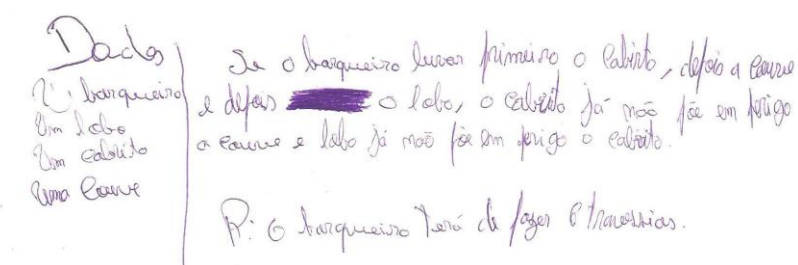 Dados
Um barqueiro
Um lobo
Um cabrito
Uma couve
Se o barqueiro levar primeiro o cabrito, depois a couve
e depois o lobo, o cabrito já não põe em perigo
a couve e lobo já não põe em perigo o cabrito.
R: O barqueiro terá de fazer 6 travessias.